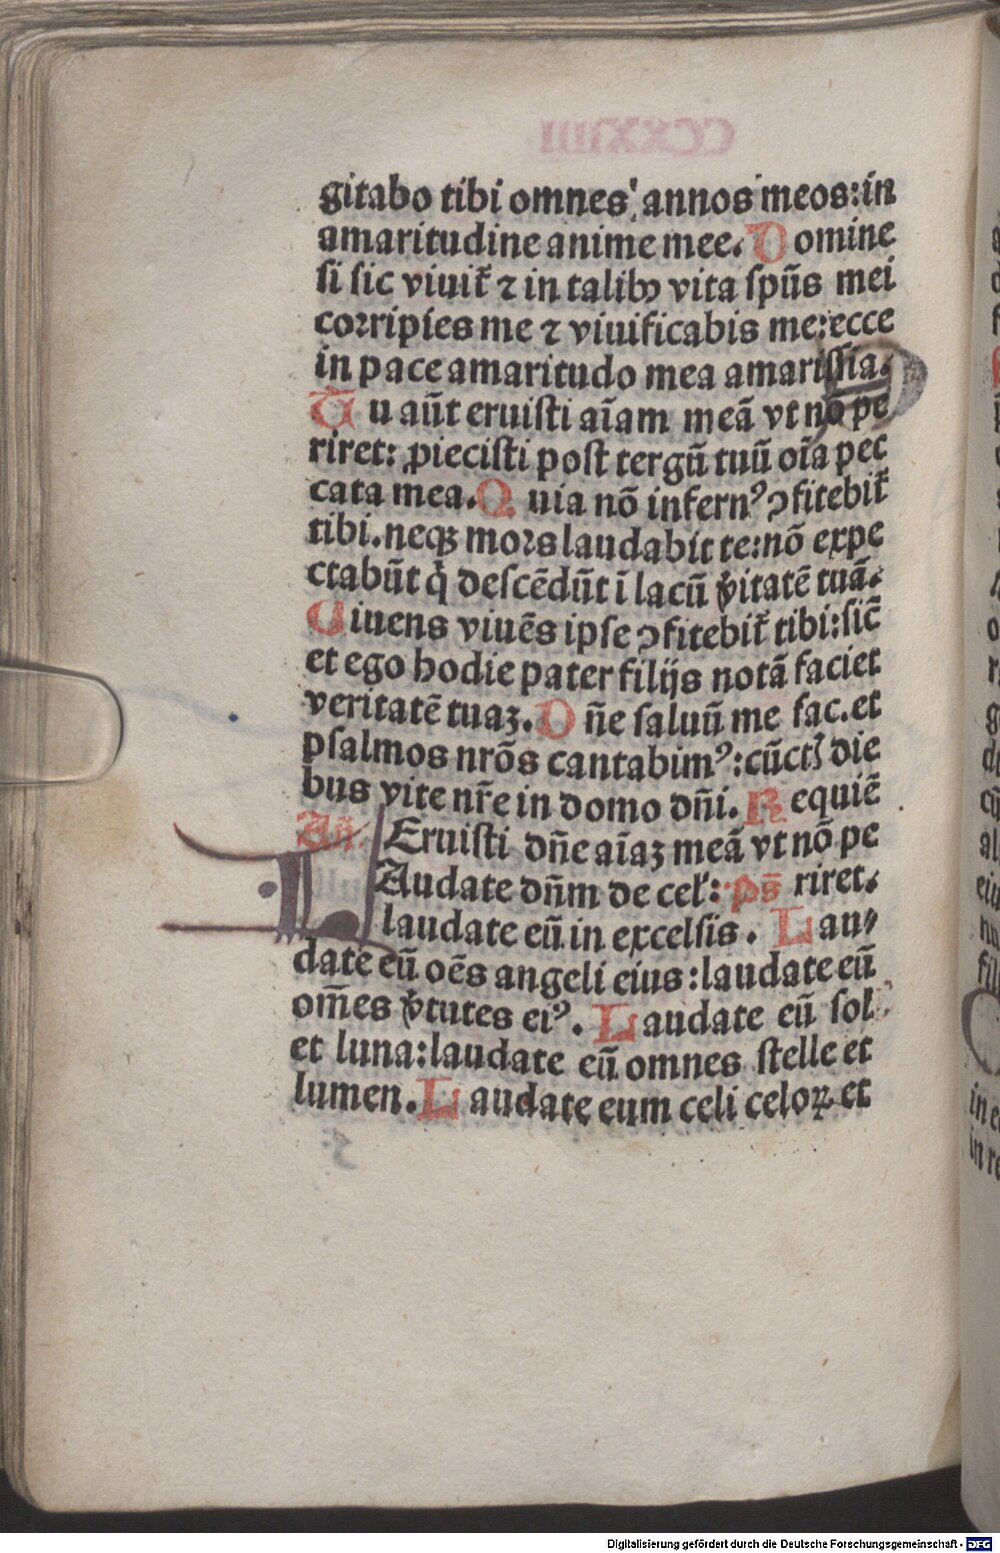 gitabo tibi omnes annos meos: in
amaritudine anime mee. Domine
si sic viuit᷑ ⁊ in talibꝰ vita spūs mei
coꝛripies me ⁊ viuificabis me: ecce
in pace amaritudo mea amarissīa.
Tu aūt eruisti aīam meā vt nō pe
riret: ꝓiecisti post tergū tuū oīa pec
cata mea. Quia nō infernꝰ ꝯfitebit᷑
tibi. neqꝫ moꝛs laudabit te: nō expe
ctabūt q̇ descēdūt ī lacū v̓itatē tuā.
Uiuens viuēs ipse ꝯfitebit᷑ tibi: sic̄
et ego hodie pater filijs notā faciet
veritatē tuaꝫ. Dn̄e saluū me fac. et
psalmos nrōs cantabimꝰ: cūctꝭ die
bus vite nr̄e in domo dn̄i. Requiē
An̄. Eruisti dn̄e aīaꝫ meā vt nō pe
Laudate dn̄m de cel̓: ps̄ riret.
laudate eū in excelsis. Lau⸗
date eū oēs angeli eius: laudate eū
om̄es v̓tutes eiꝰ. Laudate eū sol
et luna: laudate eū omnes stelle et
lumen. Laudate eum celi celoꝝ et
Digitalisierung gefördert durch die Deutsche Forschungsgemeinschaft - DFG